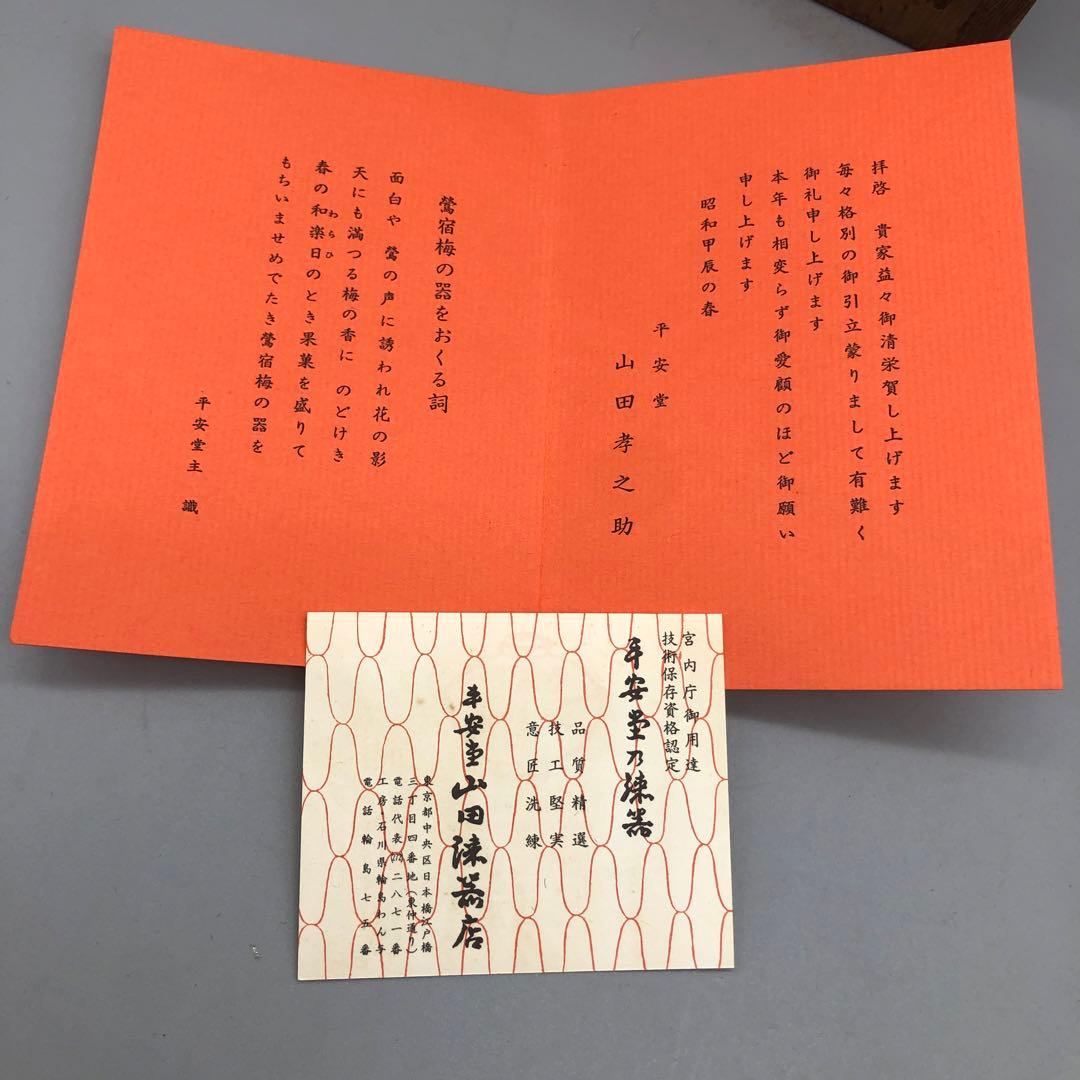 拝啓 貴家益々御清栄賀し上げます
毎々格別の御引立蒙りまして有難く
御礼申し上げます
本年も相変らず御愛顧のほど御願い
申し上げます
昭和甲辰の春
平安堂
山田孝之助
鶯宿梅の器をおくる詞
面白や 鶯の声に誘われ花の影
天にも満つる梅の香に のどけき
春の和楽日のとき果菓を盛りて
わらひ
もちいませめでたき鶯宿梅の器を
平安堂主 識
宮内庁御用達
技術保存資格認定
平安堂乃漆器
品質精選
技工堅実
意匠洗練
平安堂山田漆器店
東京都中央区日本橋江戸橋
三丁目四番地(東仲通り)
電話代表(272)二八七一番
工房・石川県輪島わん与
電話輪島七五番